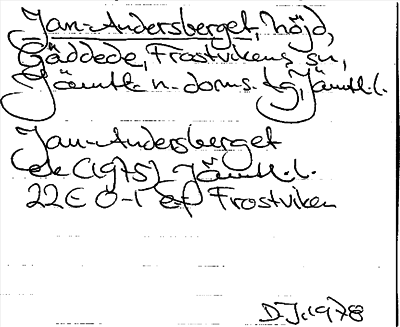 Jan-Andersberget, höjd,
Gäddede, Frostvikens sn,
Jämtl. n. doms. tg, Jämtl. l.
Jan-Andersberget
ek (1975) Jämtl. l.
22E 0-1 ef Frostviken
D.J. 1978